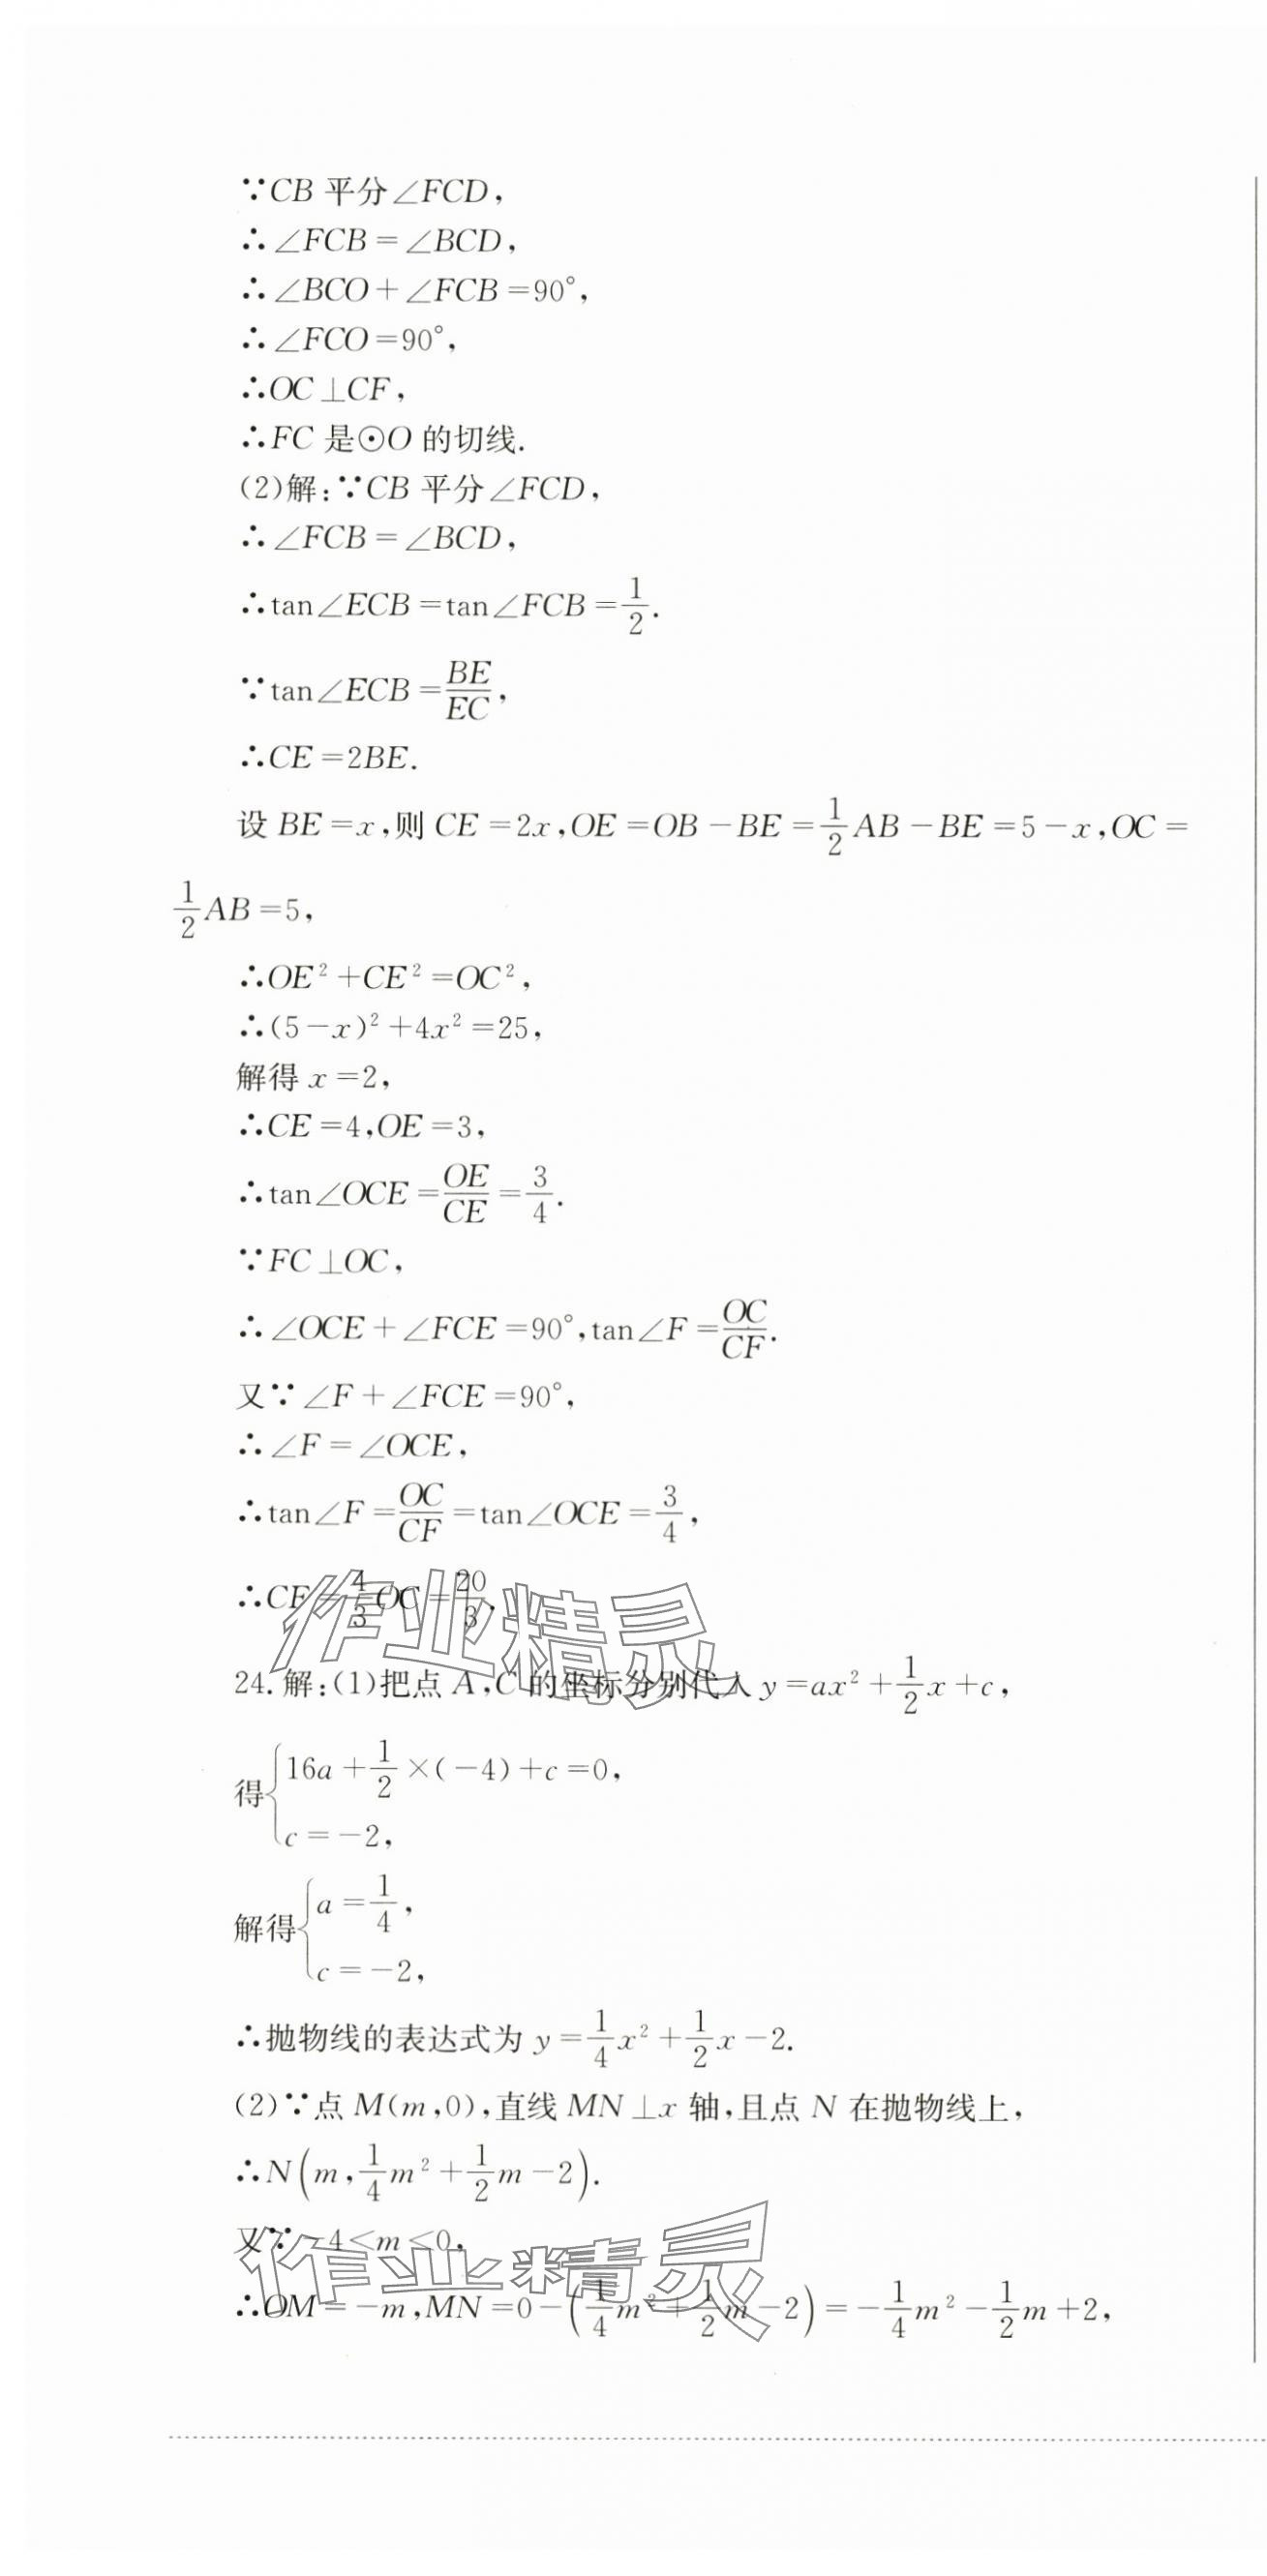 ∵CB 平分∠FCD,
∴∠FCB=∠BCD,
∴∠BCO+∠FCB=90°,
∴∠FCO=90°,
∴OC⊥CF,
∴FC 是⊙O 的切线.
(2)解:∵CB 平分∠FCD,
∴∠FCB=∠BCD,
∴tan∠ECB=tan∠FCB=1/2.
∵tan∠ECB=BE/EC,
∴CE=2BE.
设 BE=x,则 CE=2x,OE=OB-BE=1/2AB-BE=5-x,OC=
1/2AB=5,
∴OE²+CE²=OC²,
∴(5-x)²+4x²=25,
解得 x=2,
∴CE=4,OE=3,
∴tan∠OCE=OE/CE=3/4.
∵FC⊥OC,
∴∠OCE+∠FCE=90°,tan∠F=OC/CF.
又∵∠F+∠FCE=90°,
∴∠F=∠OCE,
∴tan∠F=OC/CF=tan∠OCE=3/4,
∴CF=4/3OC=20/3.
作业精灵
24.解:(1)把点 A,C 的坐标分别代入 y=ax²+1/2x+c,
得{16a+1/2×(-4)+c=0,
c=-2,
解得{a=1/4,
c=-2,
∴抛物线的表达式为 y=1/4x²+1/2x-2.
(2)∵点 M(m,0),直线 MN⊥x 轴,且点 N 在抛物线上,
∴N(m,1/4m²+1/2m-2).
又∵-4<m<0,
作业精灵
∴OM=-m,MN=0-(1/4m²+1/2m-2)=-1/4m²-1/2m+2,